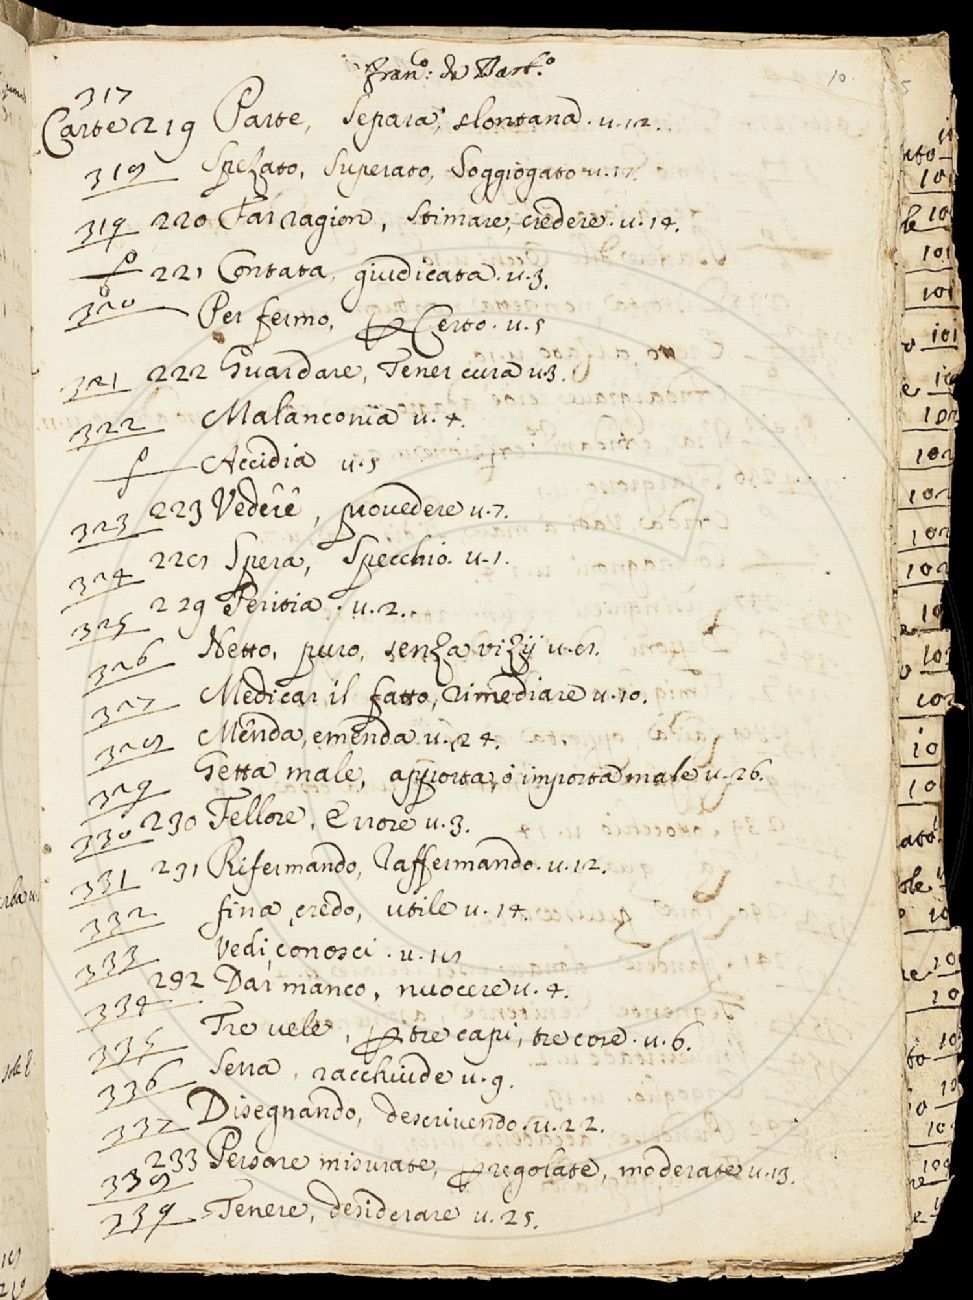 Fran.º: de Barb.º
10
317
Carte 219 Parte, separa, slontana. u. 12.
318 Spezato, superato, soggiogato u. 17.
319 220 Far ragion, stimare, credere. u. 14.
221 Contata, giudicata. u. 3.
320 Per fermo, p Certo. u. 5
321 222 Guardare, Tener cura u. 3.
322 Malanconia u. 4.
Accidia u. 5
323 223 Vedere, provedere u. 7.
324 228 Spera, Specchio. u. 1.
325 229 Peritia. u. 2.
326 Netto, puro, senza vizij u. 8.
327 Medicar il fatto, rimediare u. 10.
328 Menda, emenda u. 24.
329 Getta male, apporta, ò importa male u. 26.
330 230 Fellore, Errore u. 3.
331 231 Rifermando, Raffermando. u. 12.
332 fina credo, utile u. 14.
333 Vedi, conosci. u. 18
334 232 Dar manco, nuocere u. 4.
335 Tre vele, p tre capi, tre core. u. 6.
336 Serra, racchiude u. 9.
337 Disegnando, descrivendo. u. 22.
338 233 Persone misurate, p regolate, moderate u. 13.
339 Tenere, desiderare u. 25.